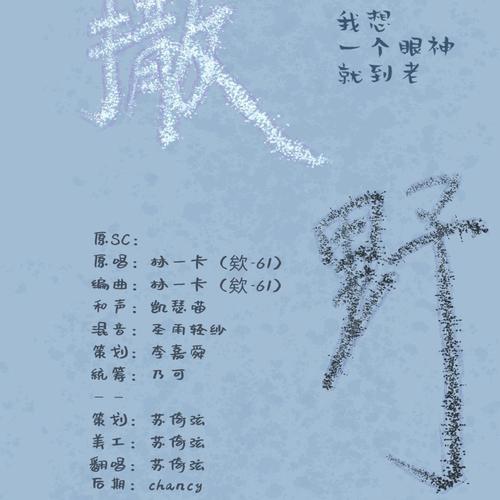 撒
野
我想
一个眼神
就到老
原SC:
原唱: 林一卡 (欸-61)
编曲: 林一卡 (欸-61)
和声: 凯瑟喵
混音: 圣雨轻纱
策划: 李嘉舜
统筹: 乃可
— —
策划: 苏倚弦
美工: 苏倚弦
翻唱: 苏倚弦
后期: chancy